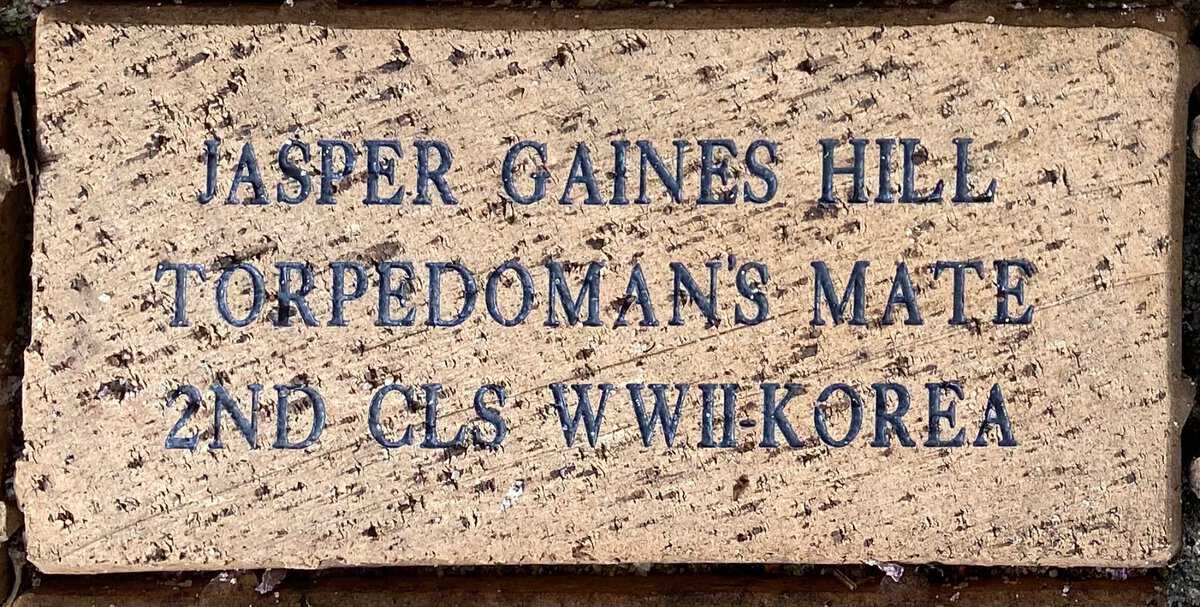 JASPER GAINES HILL
TORPEDOMAN'S MATE
2ND CLS WWII-KOREA